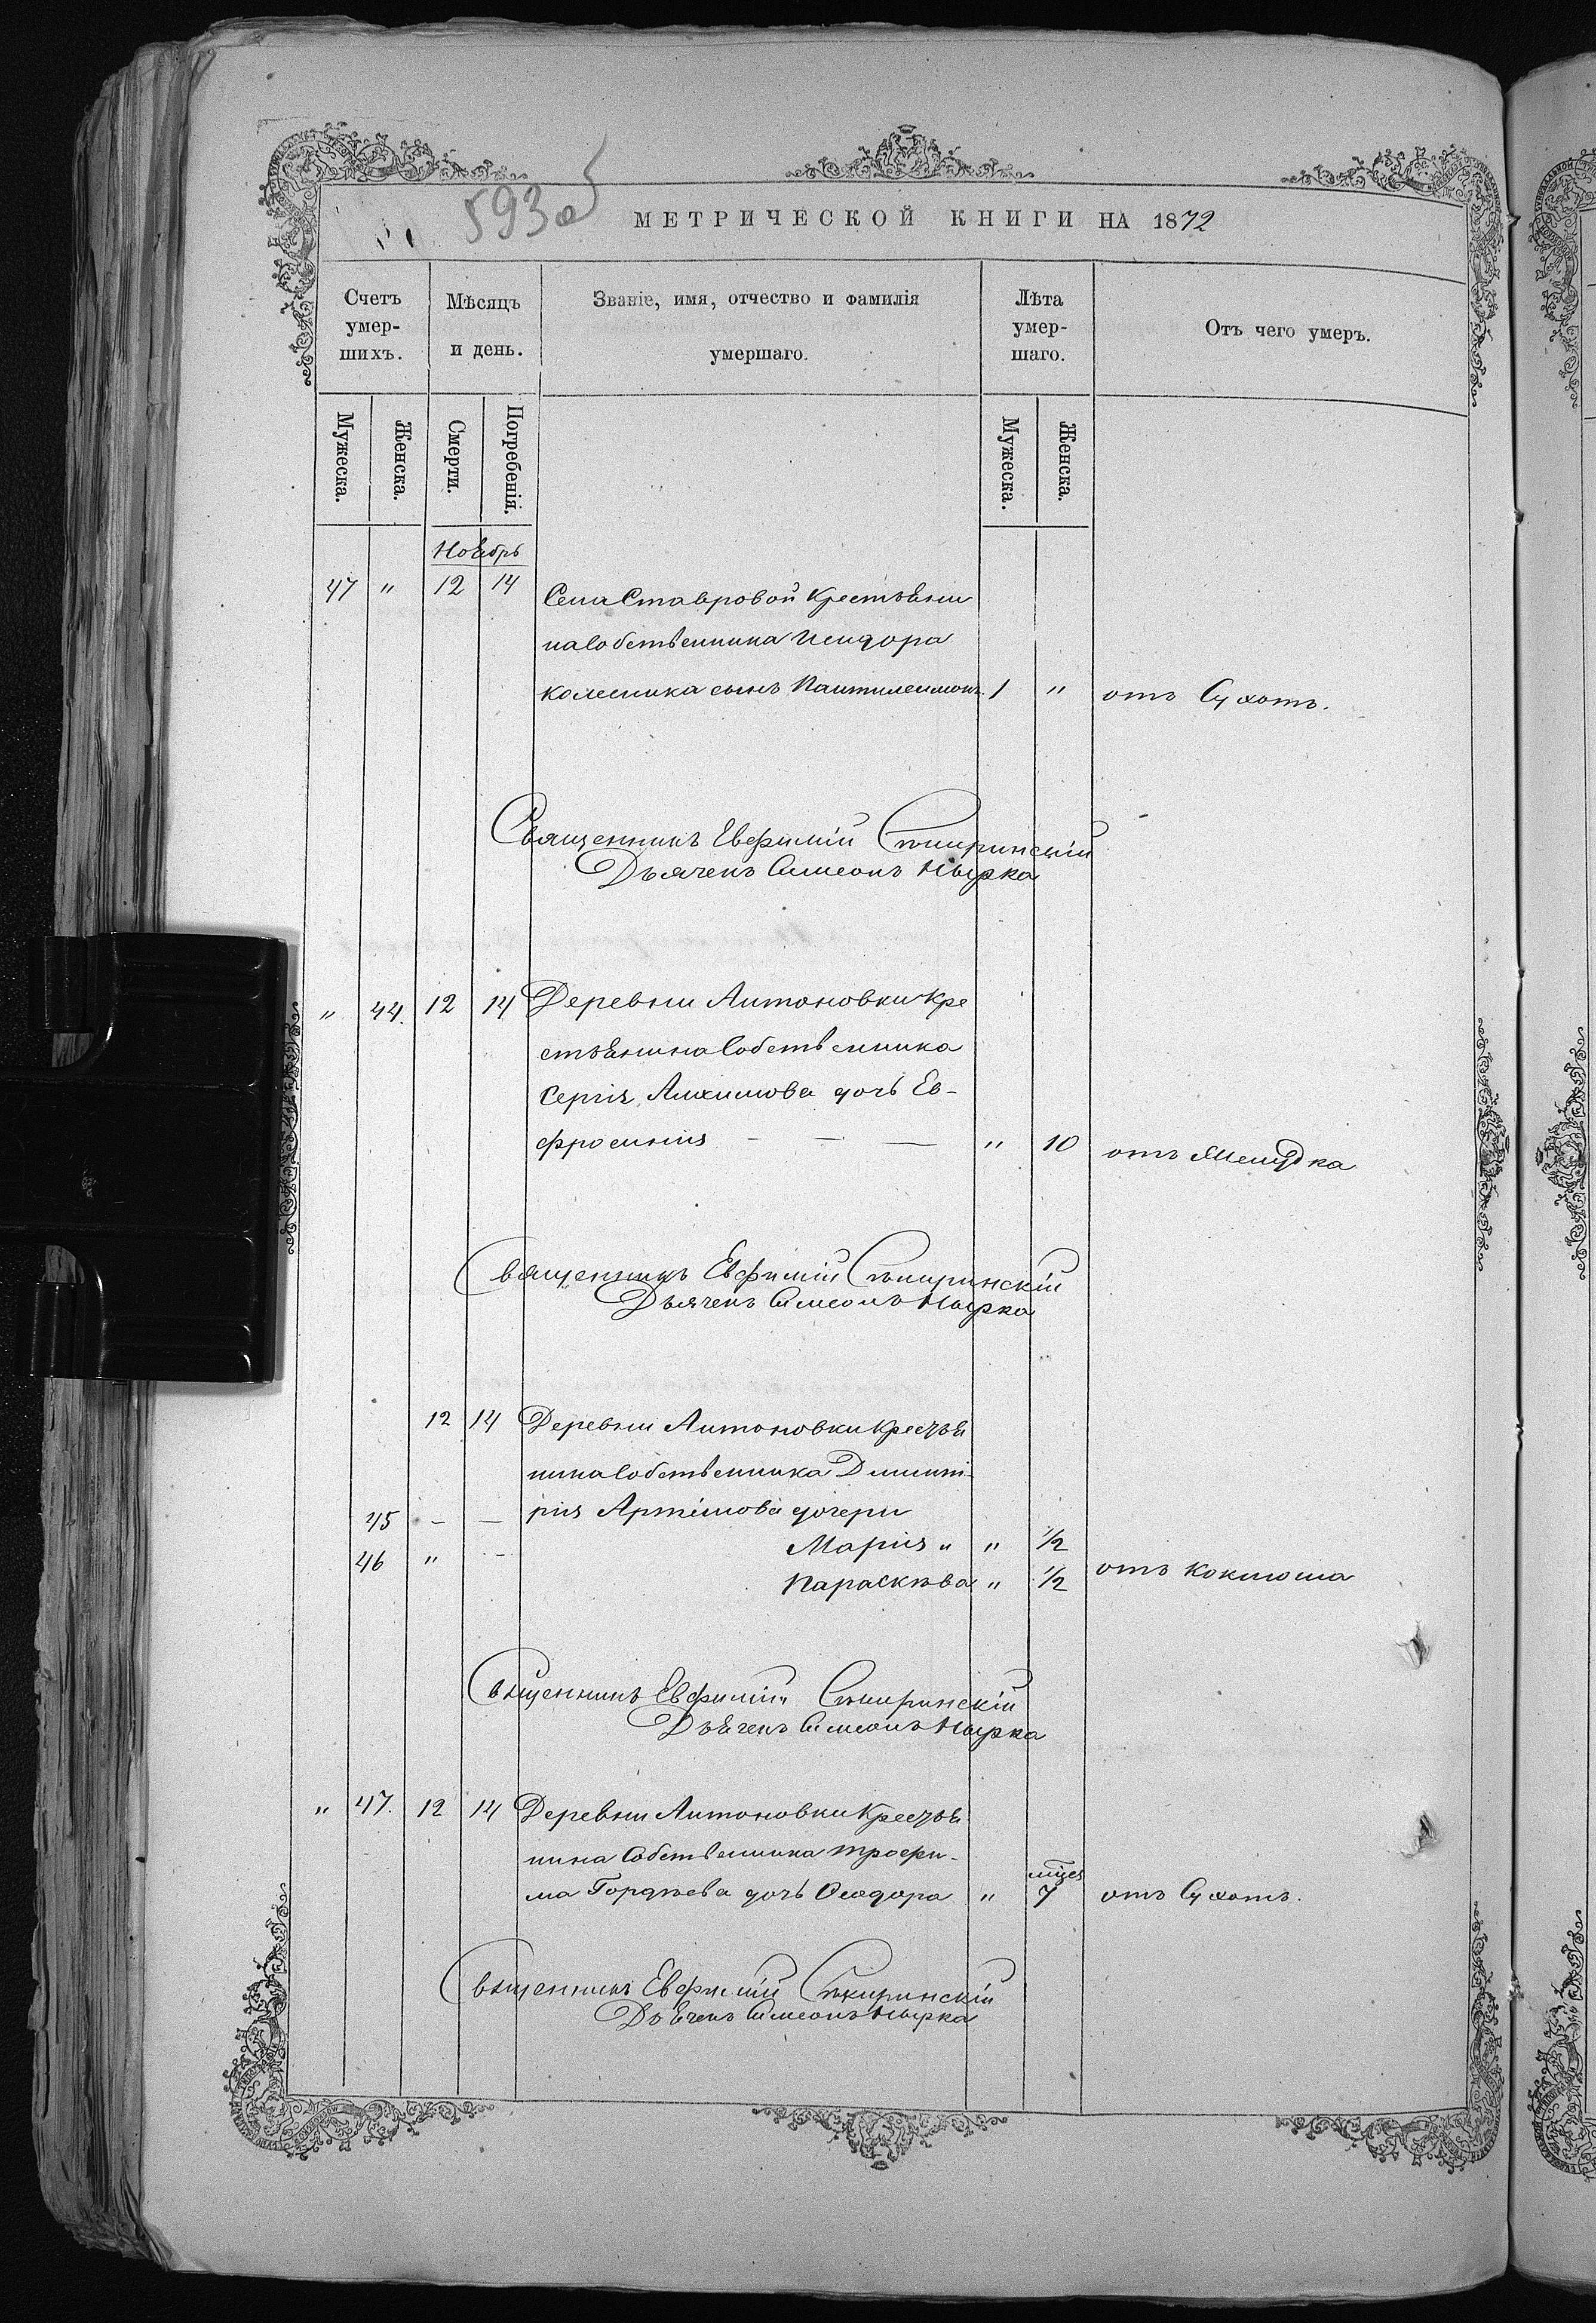 593 об
МЕТРИЧЕСКОЙ КНИГИ НА 1872
Счетъ умер-шихъ. Мѣсяцъ и день. Званіе, имя, отчество и фамилія умершаго. Лѣта умер-шаго. Отъ чего умеръ.
Мужеска. Женска. Смерти. Погребенія. Мужеска. Женска.
Ноябрь
47 " 12 14 Села Ставровой Крестьяни
на Собственника Исидора
Колесника сынъ Пантилеимонъ. 1 " отъ Сухотъ.
Священникъ Евфимій Сѣкиринскій
Дьячекъ Симеонъ Нырка
" 44. 12 14 Деревни Антоновки Кре
стьянина Собственника
Сергія Анхимова дочь Ев-
фросинія — — — " 10 отъ Желудка
Священникъ Евфимій Сѣкиринскій
Дьячекъ Симеонъ Нырка
12 14 Деревни Антоновки Крестья
нина Собственника Димит-
рія Артімова дочери
45 — — Марія " " 1/2
46 " - Параскѣва " 1/2 отъ Коклюша
Священникъ Евфимій Сѣкиринскій
Дьячекъ Симеонъ Нырка
" 47. 12 14 Деревни Антоновки Крестья
нина Собственника Трофи-
ма Гордѣева дочь Ѳеодора " мцев 7 отъ Сухотъ.
Священникъ Евфимій Сѣкиринскій
Дьячекъ Симеонъ Нырка